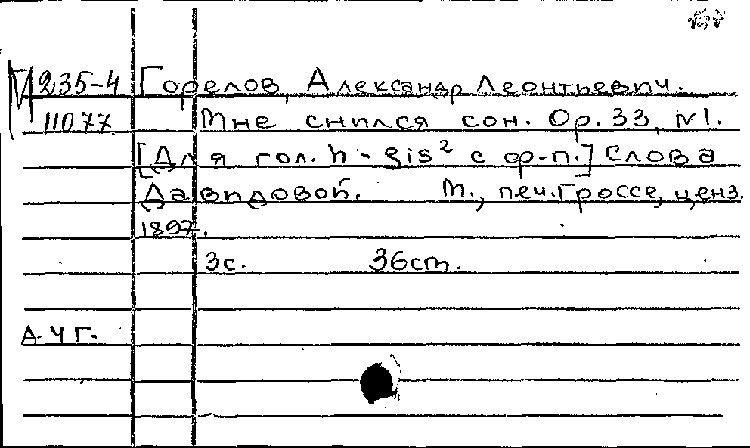 М 235-4 Горелов, Александр Леонтьевич.
11077 Мне снился сон. Ор. 33, №1.
[Для гол. h - gis² с ф-п.] Слова
Давидовой. М., печ. Гроссе, ценз.
1897.
3с. 36см.
А. Ч Г.